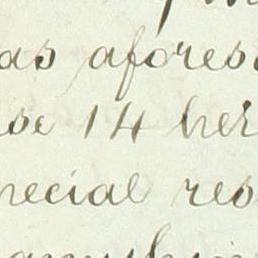 as afores
se 14 her
pecial res